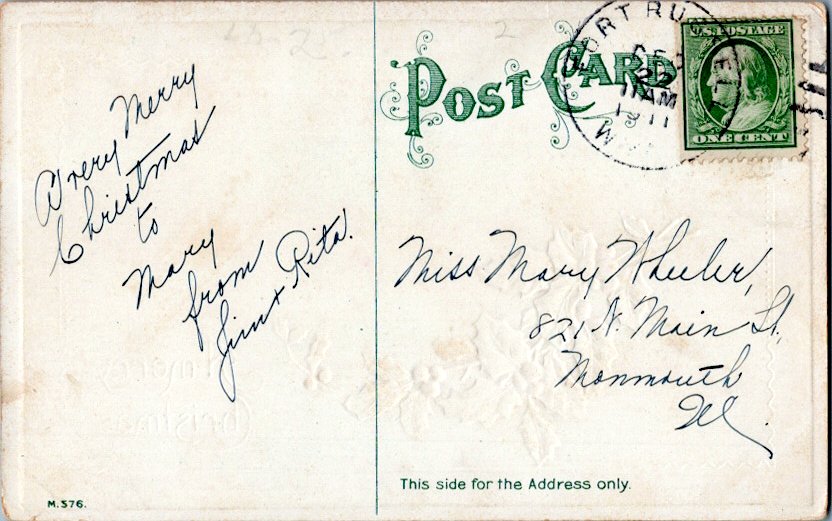 A very Merry
Christmas
to
Mary
from
Jim & Rita.
M.576.
POST CARD
FORT RUSSELL
DEC
22
11 AM
1911
U.S. POSTAGE
ONE CENT
Miss Mary Wheeler,
821 N. Main St,
Monmouth
Ill.
This side for the Address only.